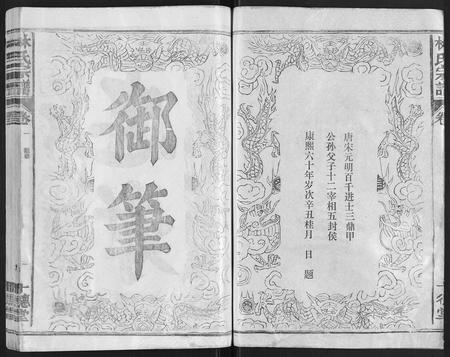 林氏宗譜
卷
唐宋元明百千进士三鼎甲
公孙父子十二宰相五封侯
康熙六十年岁次辛丑桂月 日 题
御筆
林氏宗譜
卷一
德堂